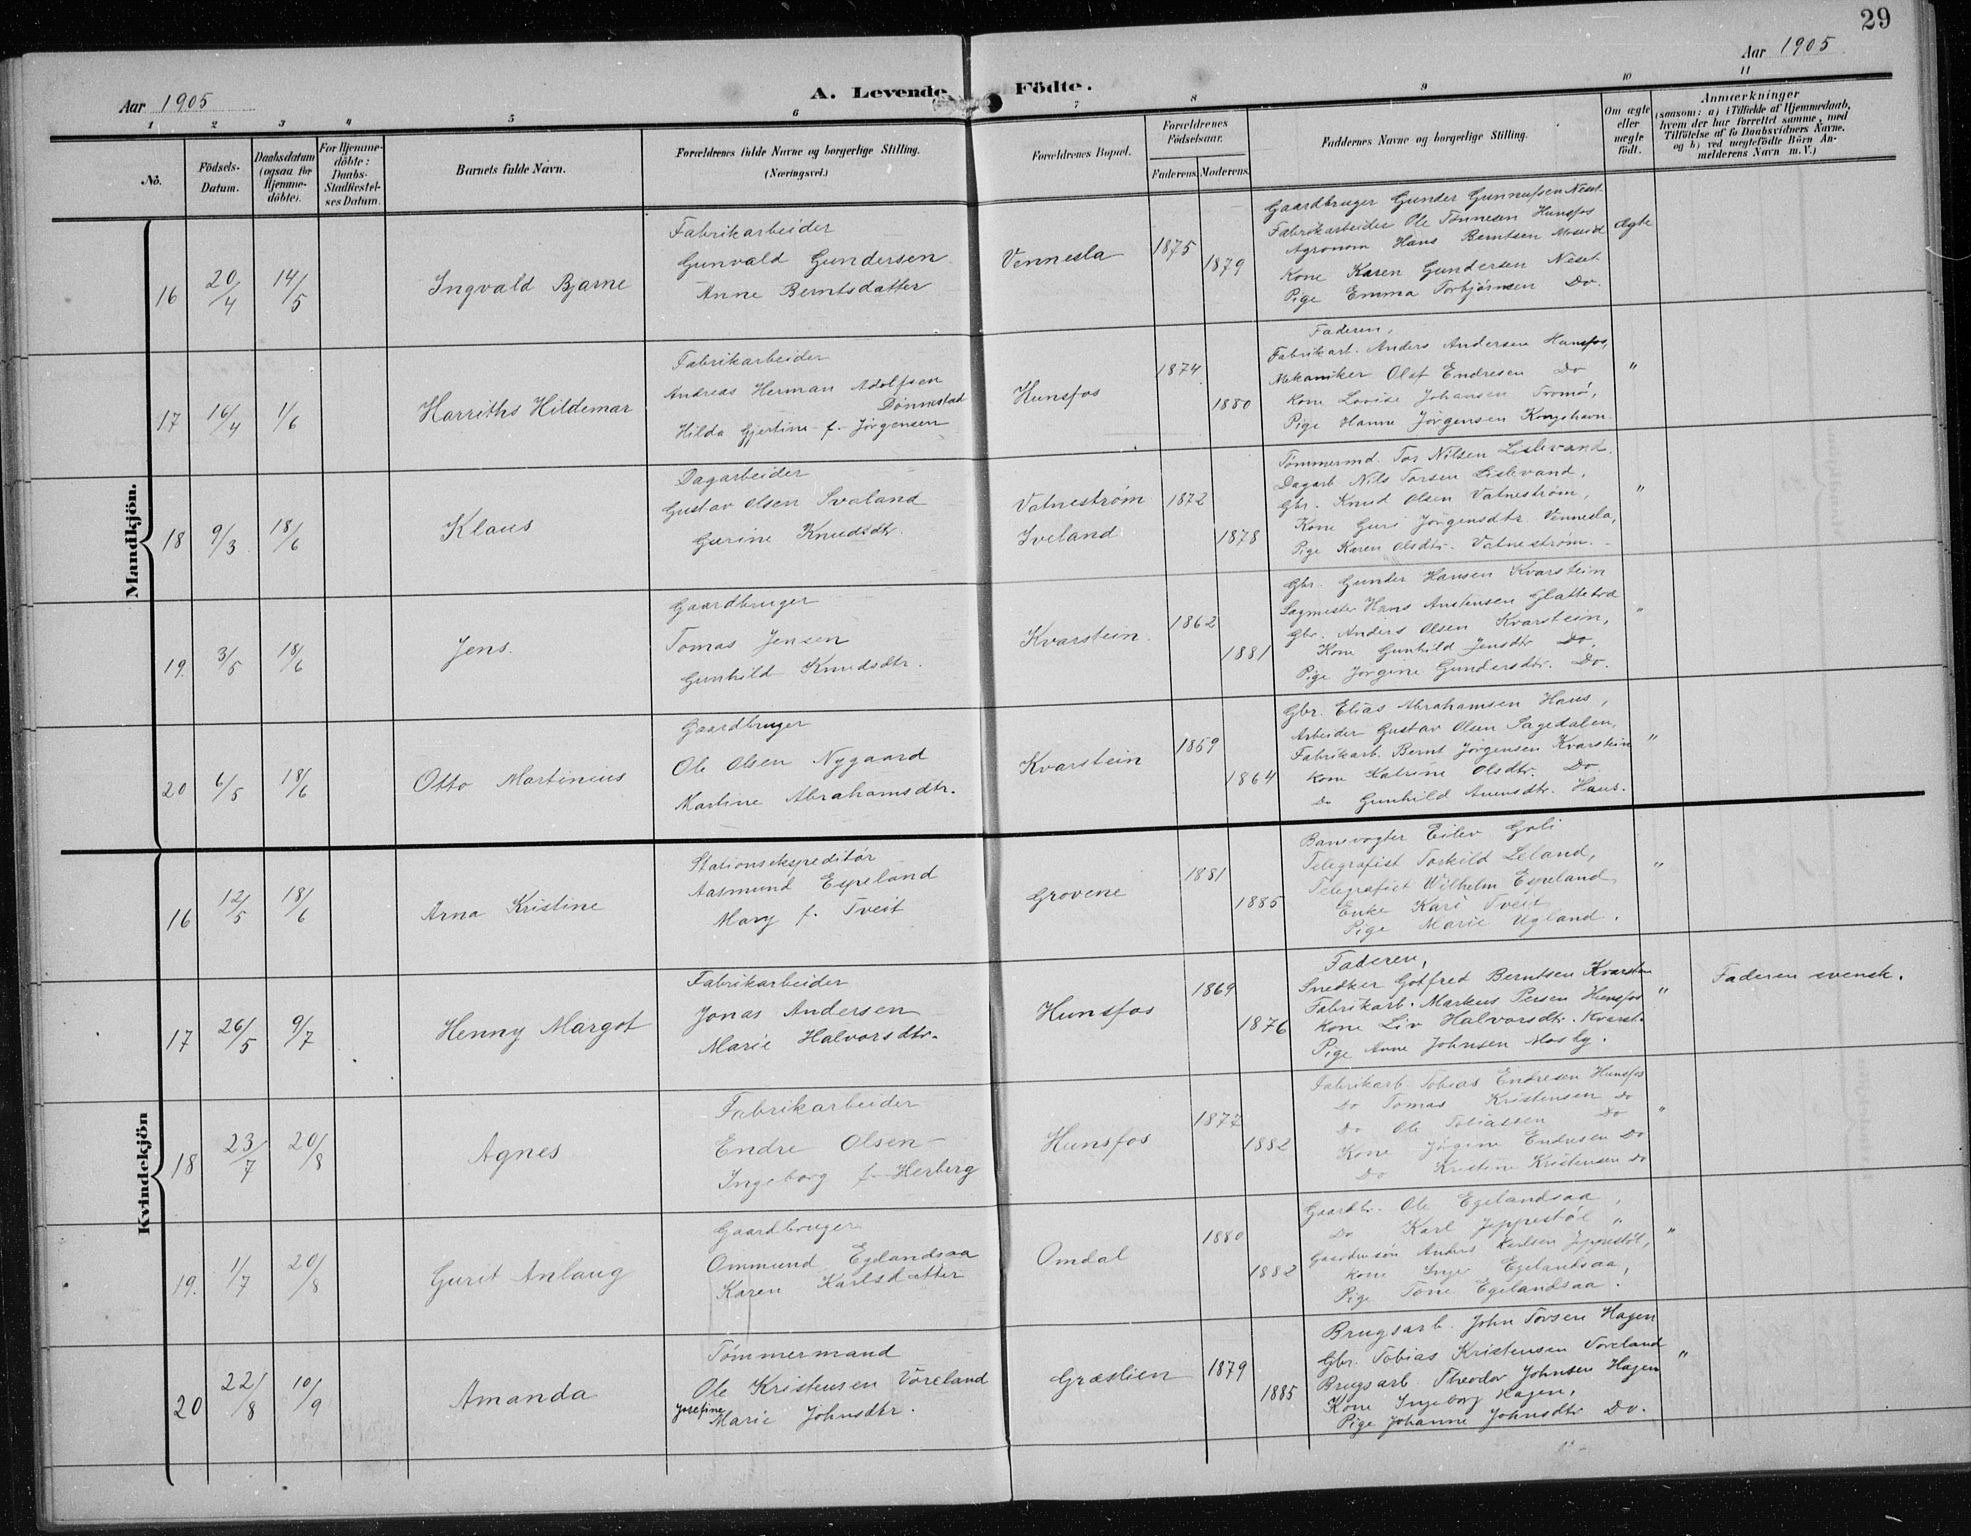 29
Aar 1905
Aar 1905
A. Levende Födte.
1 2 3 4 5 6 7 8 9 10 11
No.
Födsels-Datum.
Daabsdatum (ogsaa for Hjemmedöbte).
For Hjemmedöbte: Daabs-Stadfæstelses Datum.
Barnets fulde Navn.
Forældrenes fulde Navne og borgerlige Stilling.
(Næringsvei.)
Forældrenes Bopæl.
Forældrenes Födselsaar.
Faderens. Moderens.
Faddernes Navne og borgerlige Stilling.
Om ægte eller uægte födt.
Anmærkninger
(saasom: a) i Tilfælde af Hjemmedaab,
hvem der har forrettet samme, med
Tilföielse af to Daabsvidners Navne.
og b) ved uægtefödte Börn Anmelderens Navn m.V.)
Mandkjön.
16 20/4 14/5 Ingvald Bjarne
Fabrikarbeider
Gunvald Gundersen
Anne Berntsdatter
Vennesla 1875 1879
Gaardbruger Gunder Gunnufsen Neset
Fabrikarbeider Ole Tønnesen Hunsfos
Agronom Hans Berntsen Moseid
Kone Karen Gundersen Neset
Pige Emma Torbjørnsen Do.
Ægte
17 16/4 1/6 Harriths Hildemar
Fabrikarbeider
Andreas Herman Adolfsen
Dønnestad
Hilda Gjertine f. Jørgensen
Hunsfos 1874 1880
Faderen,
Fabrikarb. Anders Andersen Hunsfos,
Mekaniker Olaf Endresen Do
Kone Lovise Johansen Tromø,
Pige Hanne Jørgensen Kongshavn
"
18 9/3 18/6 Klaus
Dagarbeider
Gustav Olsen Svaland
Gurine Knudsdtr.
Vatnestrøm
Iveland
1872 1878
Tømmermd. Tor Nilsen Lislevand.
Dagarb Nils Torsen Lislevand,
Gbr. Knud Olsen Vatnestrøm,
Kone Guri Jørgensdtr Vennesla,
Pige Karen Olsdtr. Vatnestrøm.
"
19. 3/5 18/6 Jens.
Gaardbruger
Tomas Jensen
Gunhild Knudsdtr.
Kvarstein. 1862 1881
Gbr. Gunder Hansen Kvarstein
Sagmester Hans Austensen Glattetræ
Gbr. Anders Olsen Kvarstein,
Kone Gunhild Jensdtr Do,
Pige Jørgine Gundersdtr. Do.
"
20 6/5 18/6 Otto Martinius
Gaardbruger
Ole Olsen Nygaard
Martine Abrahamsdtr.
Kvarstein 1859 1864
Gbr. Elias Abrahamsen Haus,
Arbeider Gustav Olsen Sagedalen,
Fabrikarb. Bernt Jørgensen Kvarstein
Kone Katrine Olsdtr. Do
Do Gunhild Auensdtr. Haus.
"
Kvindekjön
16 12/5 18/6 Arna Kristine
Stationsekspeditør
Aasmund Espeland
Mary f. Tveit
Grovene 1881 1885
Banevogter Eilev Goli
Telegrafist Torkild Leland,
Telegrafist Wilhelm Espeland
Enke Kari Tveit
Pige Marie Ugland.
"
17 26/5 9/7 Henny Margot
Fabrikarbeider
Jonas Andersen
Marie Halvorsdtr.
Hunsfos 1869 1876
Faderen,
Snedker Gotfred Berntsen Kvarstein
Fabrikarb. Markus Persen Hunsfos
Kone Liv Halvorsdtr. Kvarst.
Pige Anne Johnsen Mosby.
"
Faderen svensk.
18 23/7 20/8 Agnes
Fabrikarbeider
Endre Olsen
Ingeborg f. Herberg
Hunsfos 1877 1882
Fabrikarb. Tobias Endresen Hunsfos
Do Tomas Kristensen Do
Do Ole Tobiassen Do
Kone Jørgine Endresen Do
Do Kristine Kristensen Do
"
19. 1/7 20/8 Gurit Anlaug
Gaardbruger
Ommund Egelandsaa
Karen Karlsdatter
Omdal 1880 1882
Gaardbr. Ole Egelandsaa,
Do Karl Jeppestøl,
Gaardmsøn Anders Karlsen Jeppestøl,
Kone Inge Egelandsaa,
Pige Tone Egelandsaa.
"
20 22/8 10/9 Amanda
Tømmermand
Ole Kristensen Voreland
Josefine
Marie Johnsdtr.
Græslien 1879 1885
Brugsarb. John Torsen Hagen
Gbr. Tobias Kristensen Voreland
Brugsarb. Theodor Johnsen Hagen
Kone Ingeborg Hagen,
Pige Johanne Johnsdtr Do.
"